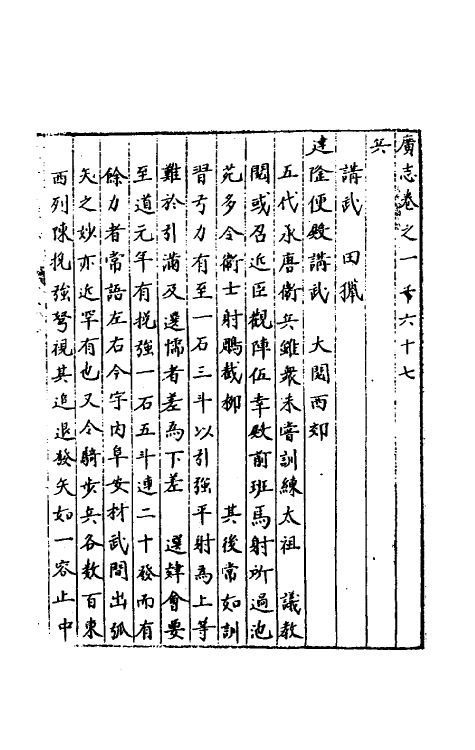 廣志卷之一百六十七
兵
講武　田獵
建隆便殿講武　大閱西郊
五代承唐衛兵雖衆未嘗訓練太祖　議教
閱或召近臣觀陣伍幸殿前班馬射所過池
苑多令衛士射鵰截柳　其後常如訓
習弓力有至一石三斗以引強平射為上等
難於引滿及選懦者差為下差　選　會要
至道元年有挽強一石五斗連二十發而有
餘力者常語左右今宇内阜安材武間出弧
矢之妙亦近罕有也又令騎步兵各數百東
西列陳挽強弩視其進退發矢如一容止中